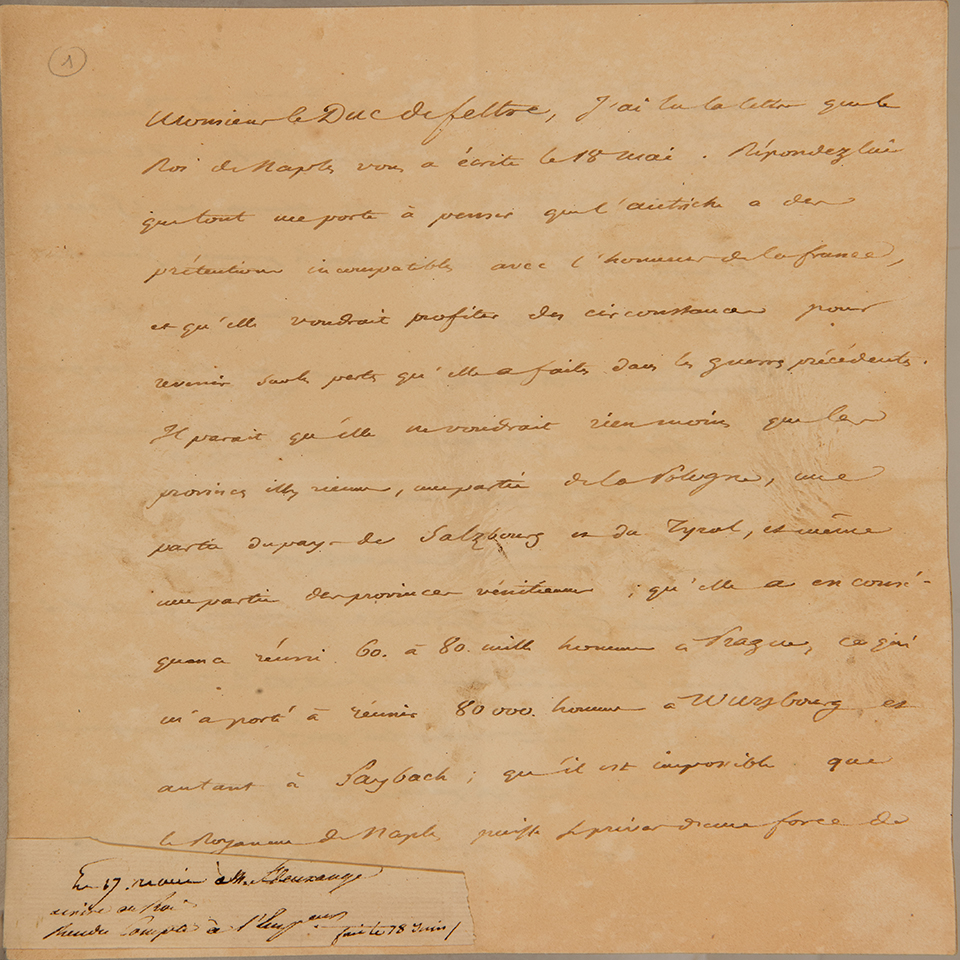 1
Monsieur le Duc de feltre, J'ai lu la lettre que le
Roi de Naples vous a écrite le 18 mai. Répondez lui
que tout me porte à penser que l'autriche a des
prétentions incompatibles avec l'honneur de la france,
et qu'elle voudrait profiter des circonstances pour
revenir sur les pertes qu'elle a faites dans les guerres précédentes.
Il parait qu'elle ne voudrait rien moins que les
provinces illyriennes, une partie de la Pologne, une
partie du pays de Salzbourg et du Tyrol, et même
une partie des provinces vénitiennes ; qu'elle a en consé-
quence réuni 60. à 80. mille hommes à Prague, ce qui
m'a porté à réunir 80 000. hommes à Wurzbourg et
autant à Laybach ; qu'il est impossible que
le Royaume de Naples puisse se priver d'une force de
Le 17. à M.
écrire au Roi
Rendre Compte à l'Empereur fait le 18 Juin